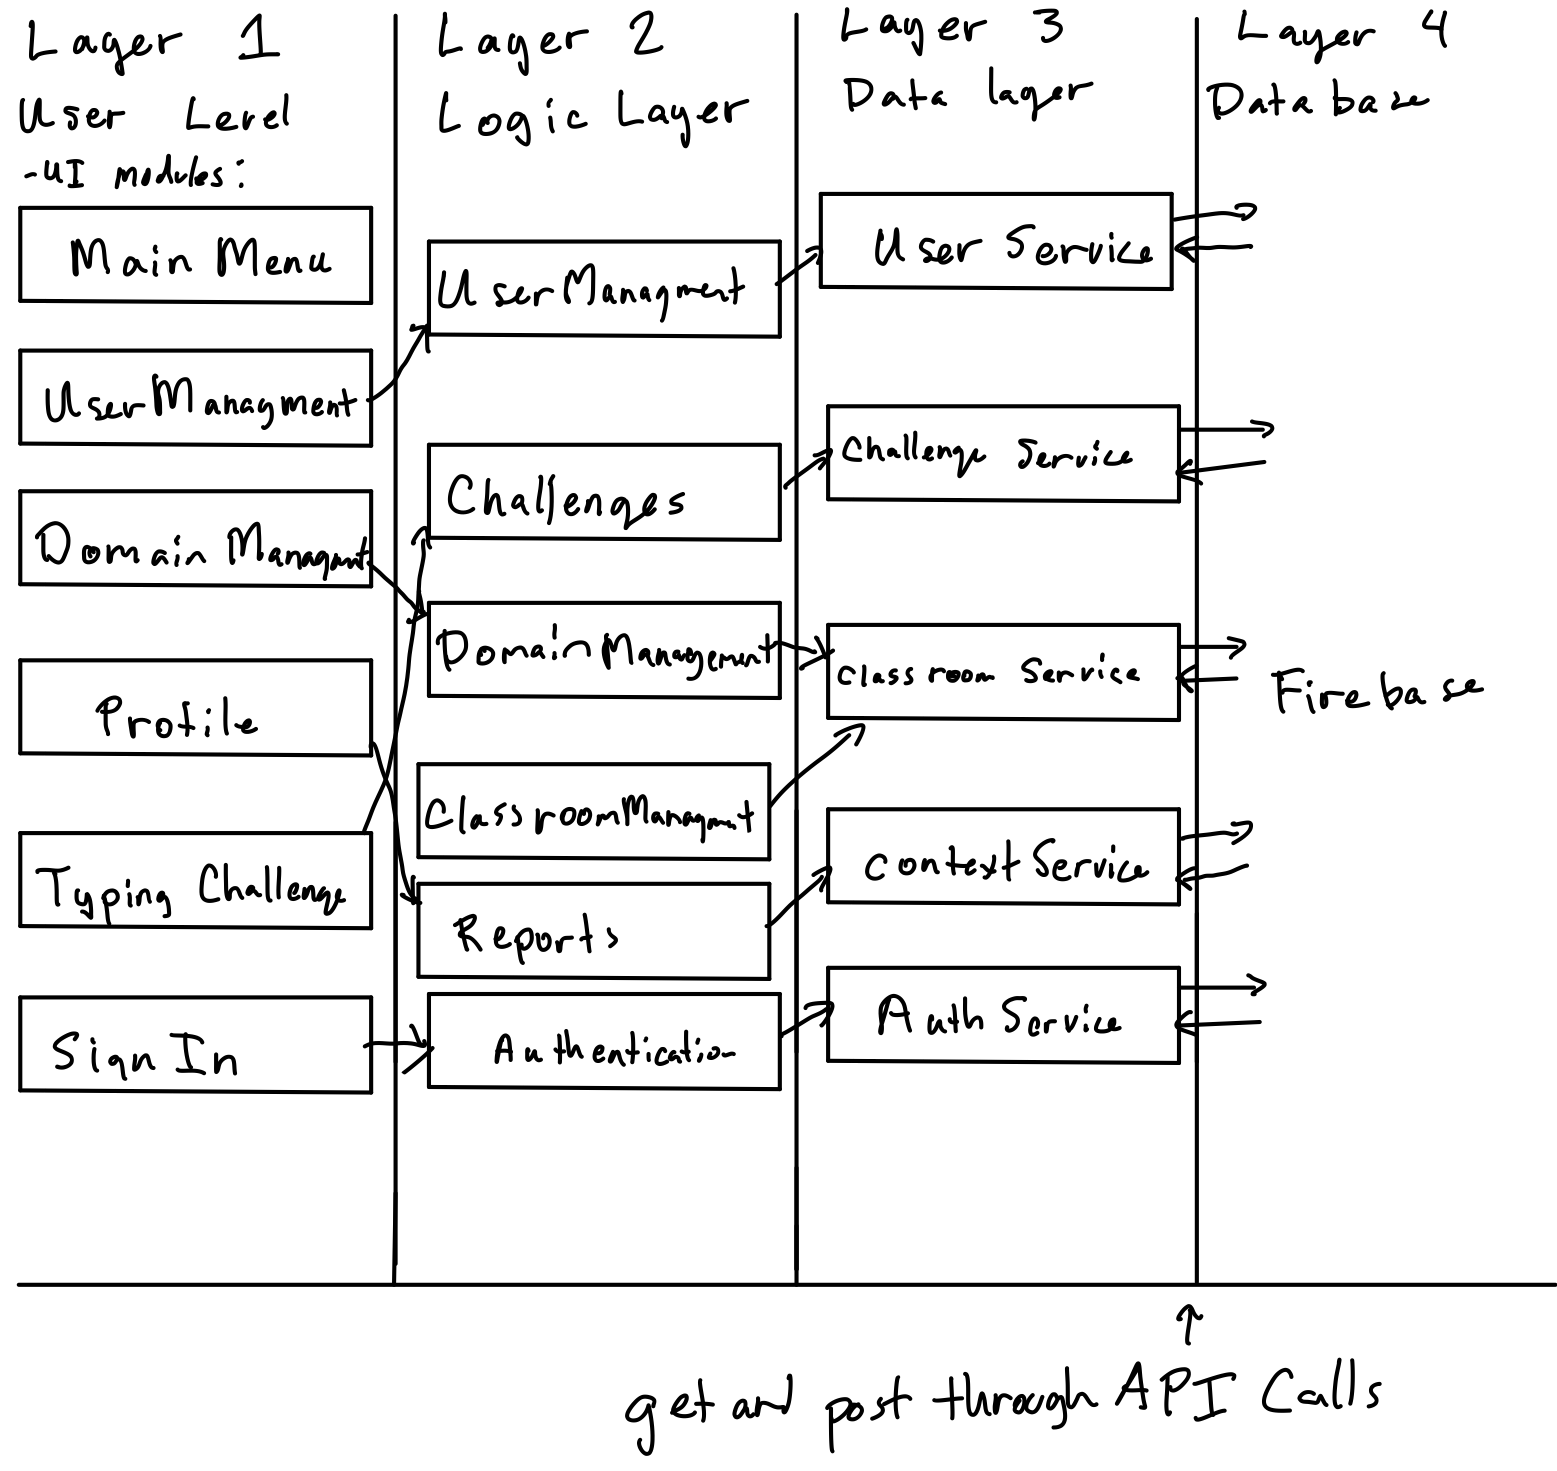 Layer 1
User Level
-UI modules:
Main Menu
User Managment
Domain Managmnt
Profile
Typing Challenge
Sign In
Layer 2
Logic Layer
User Managment
Challenges
Domain Management
Classroom Managmnt
Reports
Authentication
Layer 3
Data layer
User Service
Challenge Service
Classroom Service
Context Service
Auth Service
Layer 4
Database
Firebase
get and post through API Calls